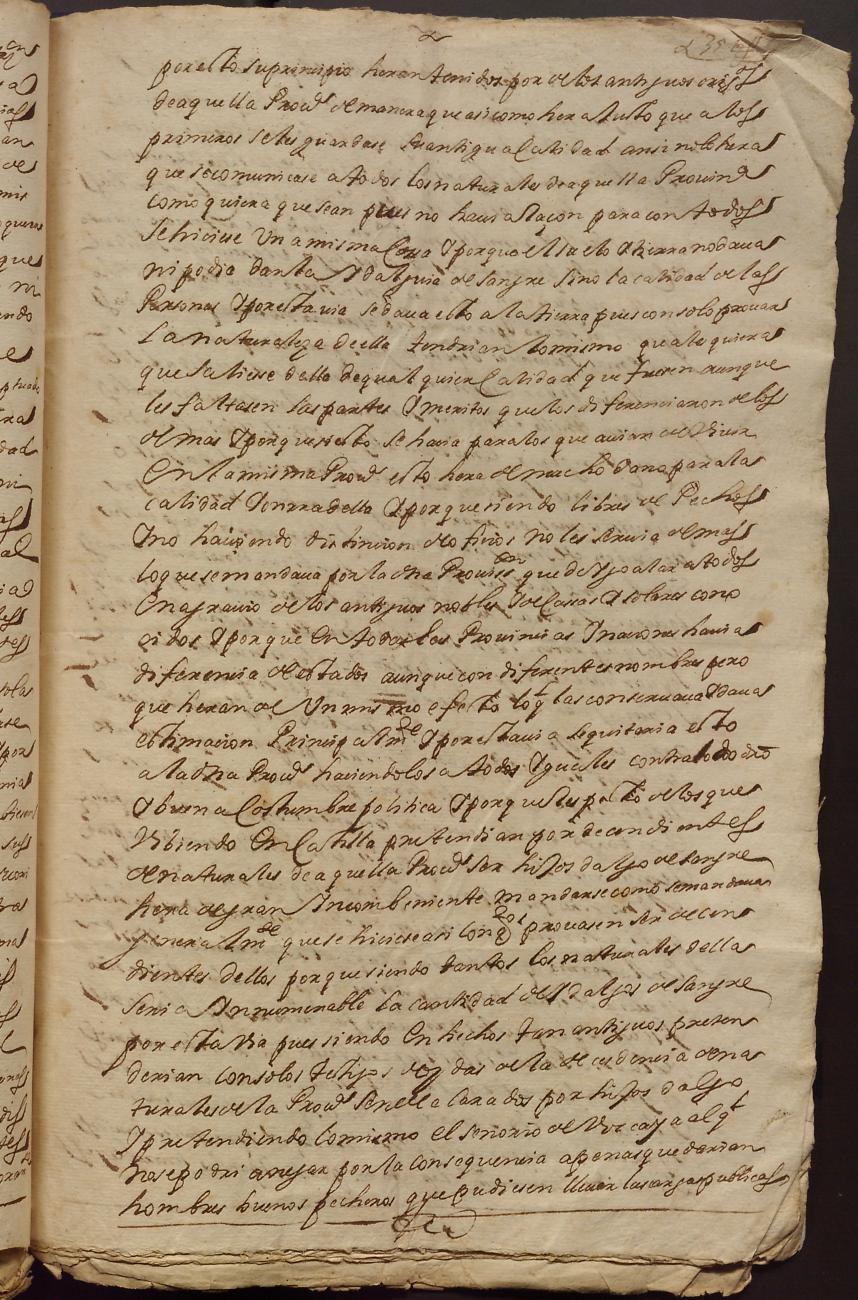 por esto su principio heran tenidos por de los antiguos
de aquella Prov.ª de manera que asi como hera Justo que a los
primeros se les guardase su antigua Calidad ansi no lo hera
que se comunicase a todos los naturales de aquella Provinª
como quiera que sean pues no havia Raçon para con todos
se hiciese Una misma Cosa Y porque el suelo o tierra no dava
ni podia dar la Ydalguia de sangre sino la calidad de las
Personas Y por esta via se dava esto a la tierra pues con solo provar
La naturaleza de ella tendrian lo mismo qualequiera
que saliese della de qualquier Calidad que fuesen aunque
les faltasen las partes Y meritos que los diferenciaron de los
demas Y porque si esto se hacia para los que avian de Vivir
En la misma Prov.ª esto hera de mucho dano para la
calidad Y onrra della Y porque siendo libres de Pechos
Y no haviendo distincion de oficios no les servia de mas
lo que se mandava por la dha Provision que de Ygualar a todos
En agravio de los antiguos nobles Y de Casas Y solares cono
cidos Y porque En todas las Provincias Y naciones havia
diferencia de estados aunque con diferentes nombres pero
que heran de Un mismo efecto lo q̃ las conservava Y dava
estimacion Principalm.te Y por esta via se quitaria esto
a la dha Prov.ª haciendolos a todos Yguales contra todo dr̃o
Y buena Costumbre politica Y porque Respecto de los que
Vibiendo En Castilla pretendian por decendientes
de naturales de aquella Prov.ª ser hijos dalgo de sangre
hera de gran Yncombeniente mandarse como se mandava
generalm.te que se hiciese asi con q provasen ser decen
dientes dellos porque siendo tantos los naturales della
seria Ynnumerable la cantidad de Ydalgos de sangre
por esta Via pues siendo En hechos tan antiguos preten
derian con solos testigos de oydas de la decendencia de na
turales de la Prov.ª ser declarados por hijos dalgo
Y pretendiendo lo mismo el señorio de Vizcaya al q̃
no se podri a negar por la consequencia apenas quedarian
hombres buenos pecheros que pudiesen llevar las cargas publicas